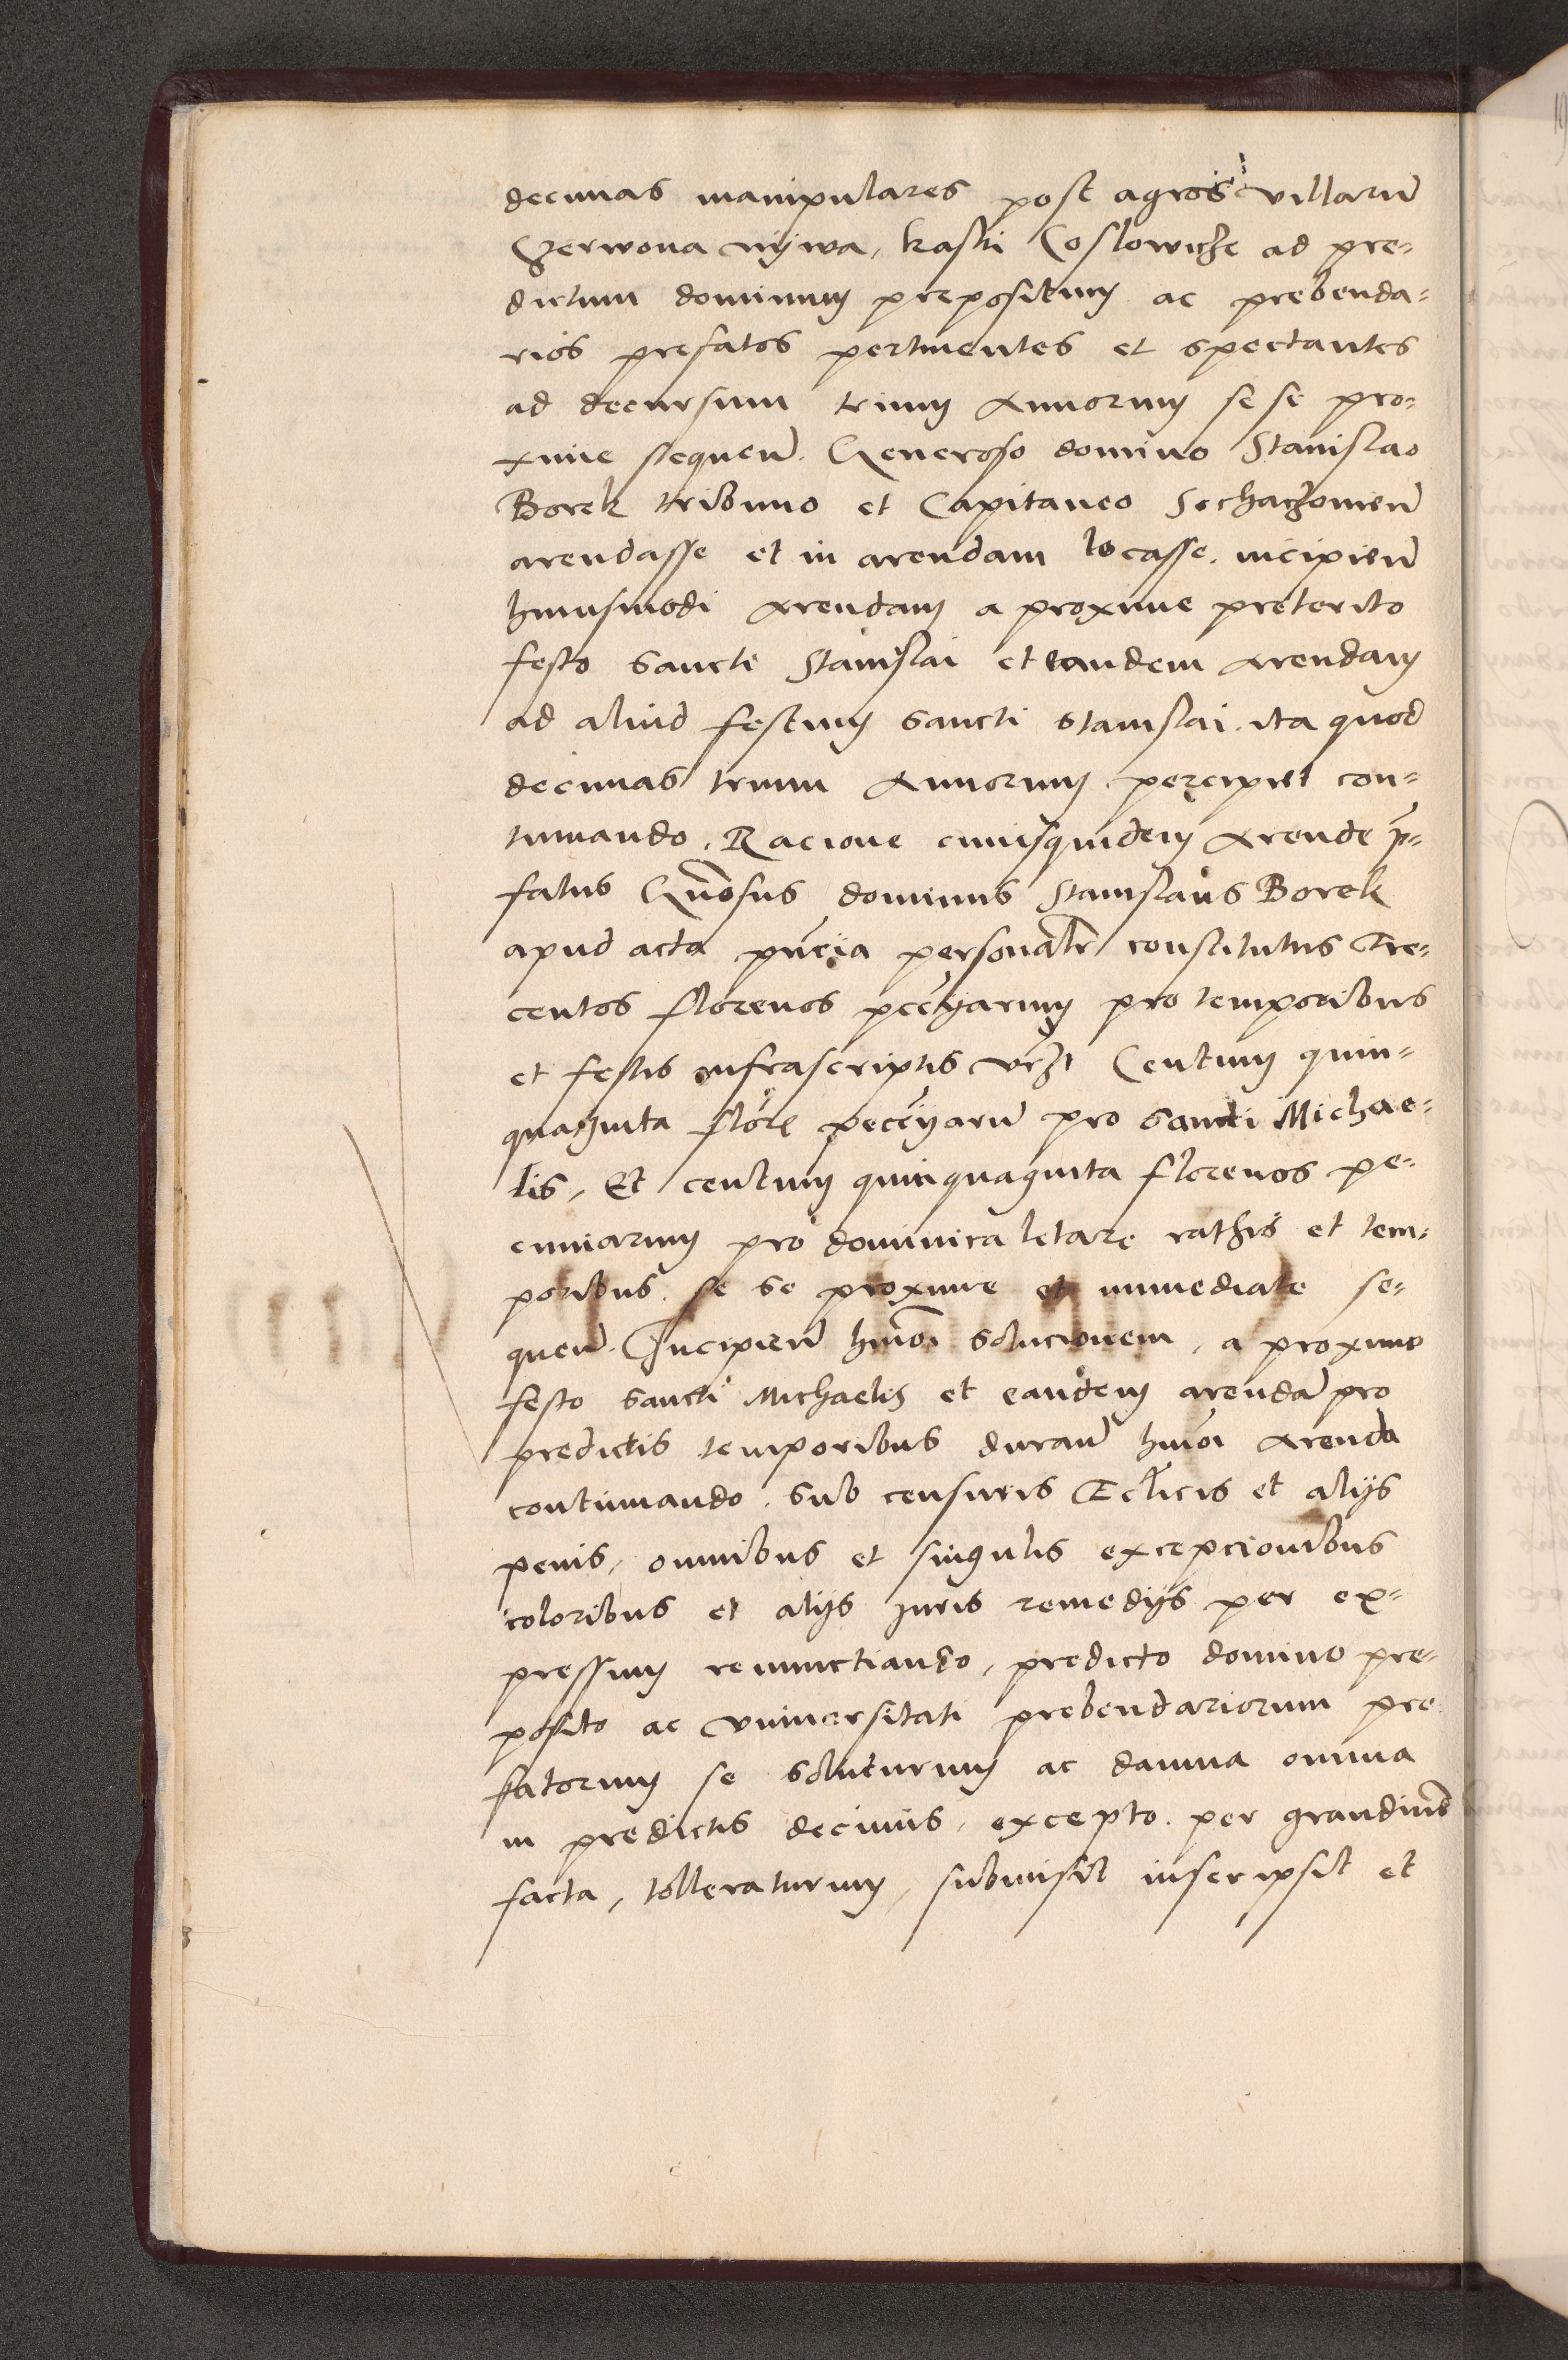 decimas manipulares post agros villarum̃
Czerwona nijwa, kaski Coslowicze ad pre=
dictum dominum prepositum ac prebenda=
rios prefatos pertinentes et spectantes
ad decursum trium Annorum se se pro=
xime sequeñ. Generoso domino Stanislao
Borek tribuno et Capitaneo Sochaczowieñ
arendasse et in arendam locasse, incipieñ
huiusmodi Arendam a proxime preterito
festo Sancti Stanislai et eandem Arendam
ad aliud festum Sancti Stanislai. ita quod
decimas trium Annorum percipiet con=
tinuando. Racione cuiusquidem Arende p̃=
fatus Gñosus dominus Stanislaus Borek
apud acta pñcia personalr̃ constitutus Tre=
centos florenos pecc̃iarum pro temporibus
et festis infrascriptis vcz̃t Centum quin=
quaginta flore pecc̃iarũ pro Sancti Michae=
lis, Et centum quinquaginta florenos pe=
cuniarum pro dominica letare rathis et tem=
poribus se se proxime et immediate se=
queñ. Incipieñ hmõi solucionem, a proximo
festo Sancti Michaelis et eandem arendã pro
predictis temporibus durañ hmõi Arenda
continuando. Sub censuris Ecl̃icis et alijs
penis, omnibus et singulis excepcionibus
coloribus et alijs juris remedijs per ex=
pressum renunctiando, predicto domino pre=
posito ac universitati prebendariorum pre
fatorum se soluturum ac damna omnia
in predictis decimis, excepto per grandines
facta, tolleraturum, submisit inscripsit et